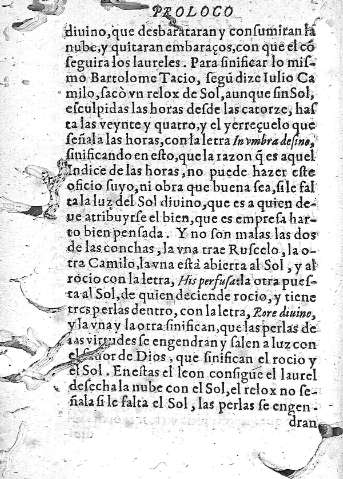 PROLOGO
diuino, que desbarataran y consumiran la
nube, y quitaran embaraços, con que el cõ
seguira los laureles. Para sinificar lo mis-
mo Bartolome Tacio, segũ dize Iulio Ca
milo, sacò vn relox de Sol, aunque sin Sol,
esculpidas las horas desde las catorze, has
ta las veynte y quatro, y el yerreçuelo que
señala las horas, con la letra In vmbra desino,
sinificando en esto, que la razon q̃ es aquel
Indice de las horas, no puede hazer este
oficio suyo, ni obra que buena sea, si le fal
ta la luz del Sol diuino, que es a quien de-
ue atribuyrse el bien, que es empresa har-
to bien pensada. Y no son malas las dos
de las conchas, la vna trae Ruscelo, la o-
tra Camilo, la vna està abierta al Sol, y al
rocio con la letra, His perfusa: la otra pues-
ta al Sol, de quien deciende rocio, y tiene
tres perlas dentro, con la letra, Rore diuino,
y la vna y la otra sinifican, que las perlas de
las virtudes se engendran y salen a luz con
el fauor de Dios, que sinifican el rocio y
el Sol. En estas el leon consigue el laurel
desecha la nube con el Sol, el relox no se-
ñala si le falta el Sol, las perlas se engen-
dran